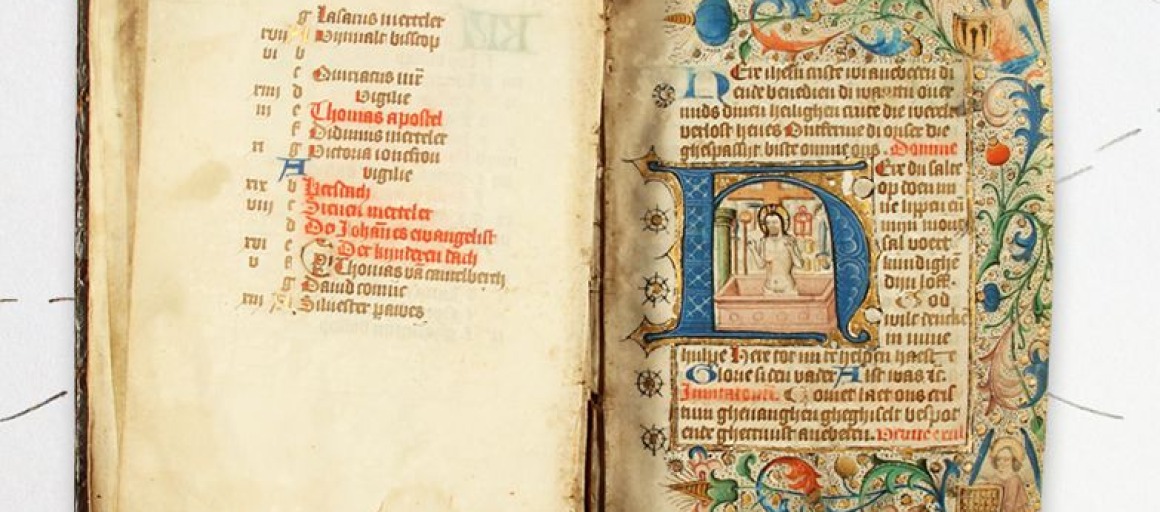 g Lasarus merteler
xvii A Wijnnalt bisscop
vi b
c Quiriacus mr̄
xiiii d Vigilie
iii e Thomas apostel
f Didimus merteler
xi g Victoria ioncfrou
A vigilie
xix b Kersdach
viii c Steuen merteler
d Do Johan̄es ewangelist
xvi e Der kinderen dach
v f Thomas vā cantelberch
g Dauid coninc
xiii A Siluester pawes
Ere ihesu criste wi anebeden di
ende benedien di want du ouer
mids dinen heilighen cruce die werelt
verlost heues
ghepassijt biste ontferme ons. Domine
Ere du salte
op doen mī
ne lippen eñ
mijn mont
sal voert
kundighē
dijn loff.
God
wilt dencke
in mine
hulpe Here tot mi te helpen haeste
Glorie si den vader Alst was etc.
Inuitatorium. Comet laet ons cris
tum ghevanghen ghegheiselt bespot
ende ghecruust anebeden.